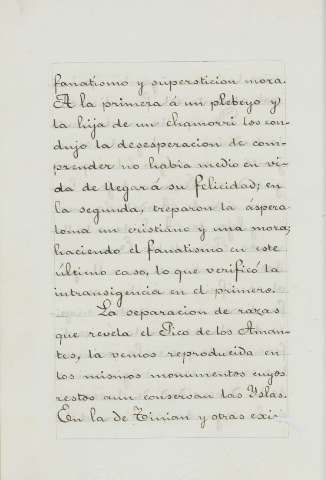 fanatismo y supersticion mora.
A la primera á un plebeyo y
la hija de un chamorri los con-
dujo la desesperacion de com-
prender no habia medio en vi-
da de llegar á su felicidad; en
la segunda, treparon la áspera
loma un cristiano y una mora;
haciendo el fanatismo en este
último caso, lo que verificó la
intransigencia en el primero.
La separacion de razas
que revela el Pico de los Aman-
tes, la vemos reproducida en
los mismos monumentos cuyos
restos aun conservan las Yslas.
En la de Tinian y otras exi-